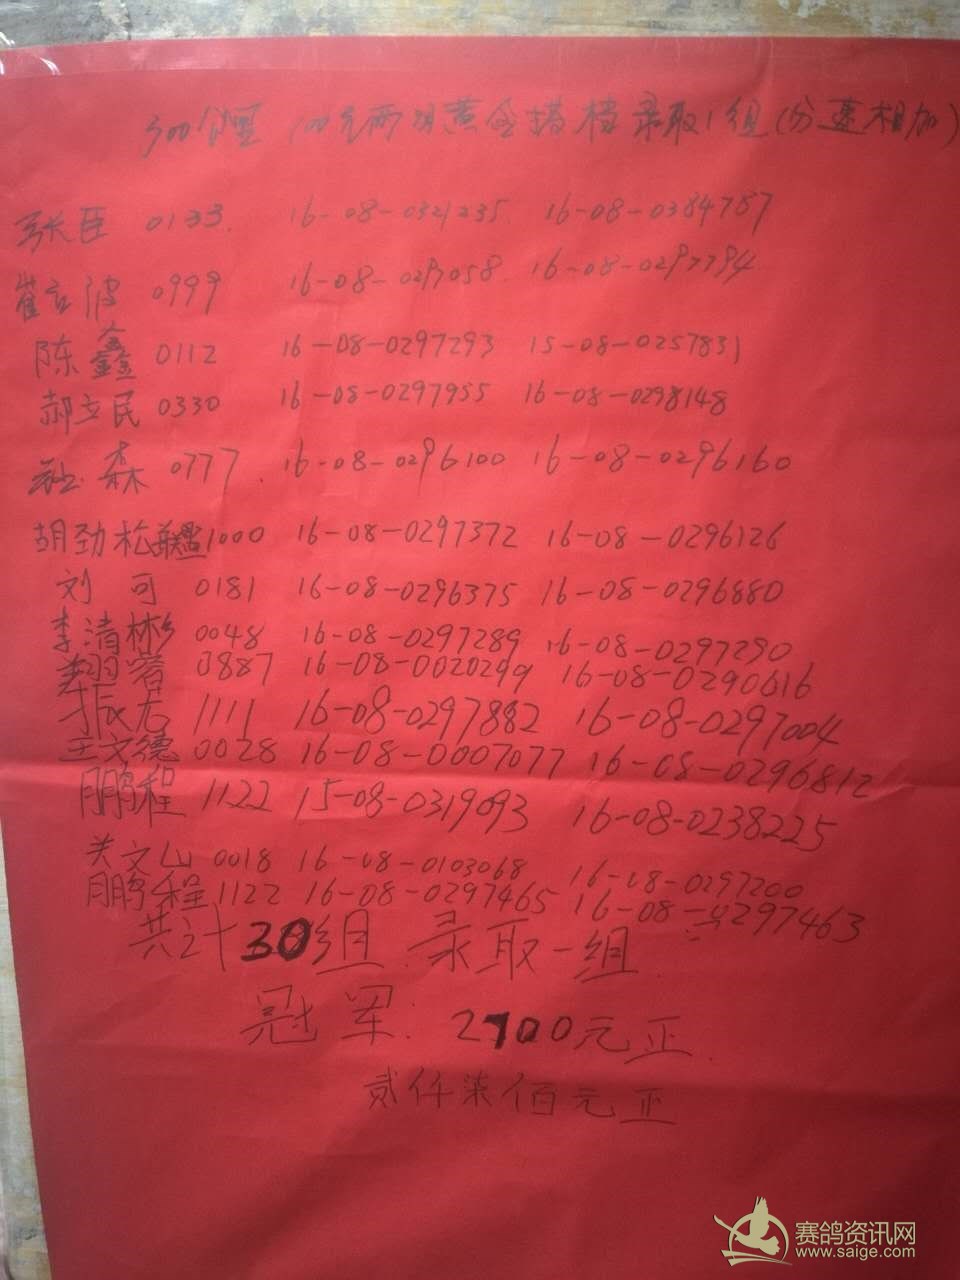 300公里 100元两羽黄金搭档录取1组(分速相加)
张臣 0133. 16-08-0321235. 16-08-0384787
崔 波 0999 16-08-0297058. 16-08-0297794
陈鑫 0112 16-08-0297293 15-08-0257831
郝立民 0330 16-08-0297955 16-08-0298148
森 0777. 16-08-0296100 16-08-0296160
胡劲松 1000 16-08-0297372 16-08-0296126
刘可 0181 16-08-0296375 16-08-0296880
李清彬 0048 16-08-0297289 16-08-0297290
0887 16-08-0020299 16-08-0290616
振岩 1111 16-08-0297882 16-08-0297004
王文德 0028 16-08-0007077 16-08-0296812
鹏程 1122 15-08-0319093 16-08-0238225
关文山 0018 16-08-0103068 16-08-0297200
鹏程 1122 16-08-0297465 16-08-0297463
共计30组.录取一组.
冠军:2700元正.
贰仟柒佰元正
赛鸽资讯网
www.saige.com